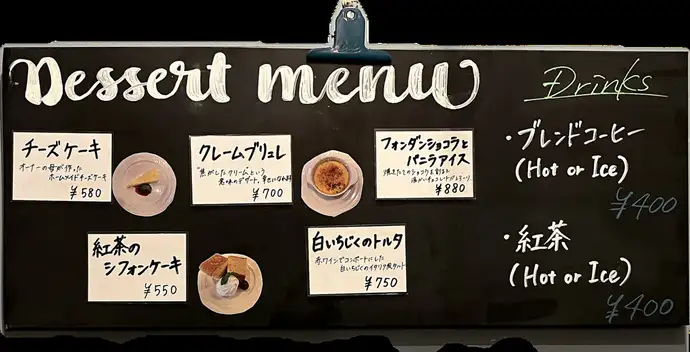 Dessert menu
チーズケーキ
オーナーの母が作った
ホームメイドチーズケーキ
¥580
クレームブリュレ
"焦がしたクリーム"という
意味のデザート。
¥700
フォンダンショコラと
バニラアイス
¥880
紅茶の
シフォンケーキ
¥550
白いちじくのトルタ
赤ワインでコンポートにした
白いちじくのイタリア風タルト
¥750
Drinks
・ブレンドコーヒー
(Hot or Ice)
¥400
・紅茶
(Hot or Ice)
¥400